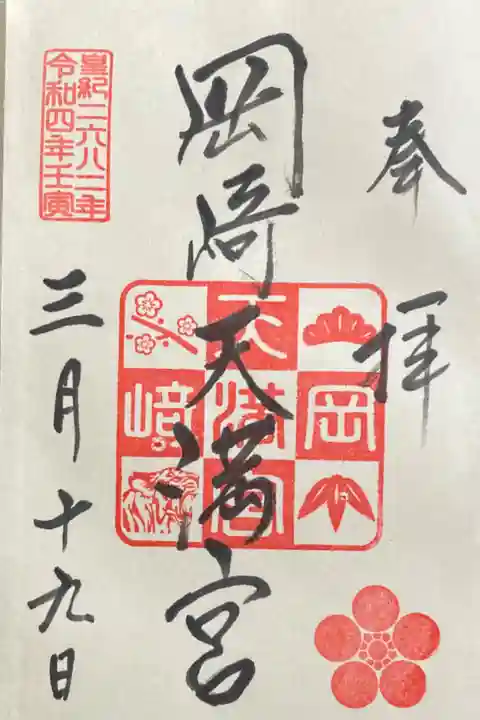 奉拝
岡崎天満宮
岡
天満宮
﨑
皇紀二六八二年
令和四年壬寅
三月十九日